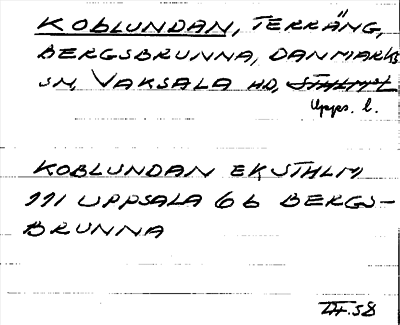 KOBLUNDAN, TERRÄNG,
BERGSBRUNNA, DANMARKS
SN, VAKSALA HD, STHLMS L
Upps. l.
KOBLUNDAN EK STHLM
111 UPPSALA 6 b BERGS-
BRUNNA
TF.58